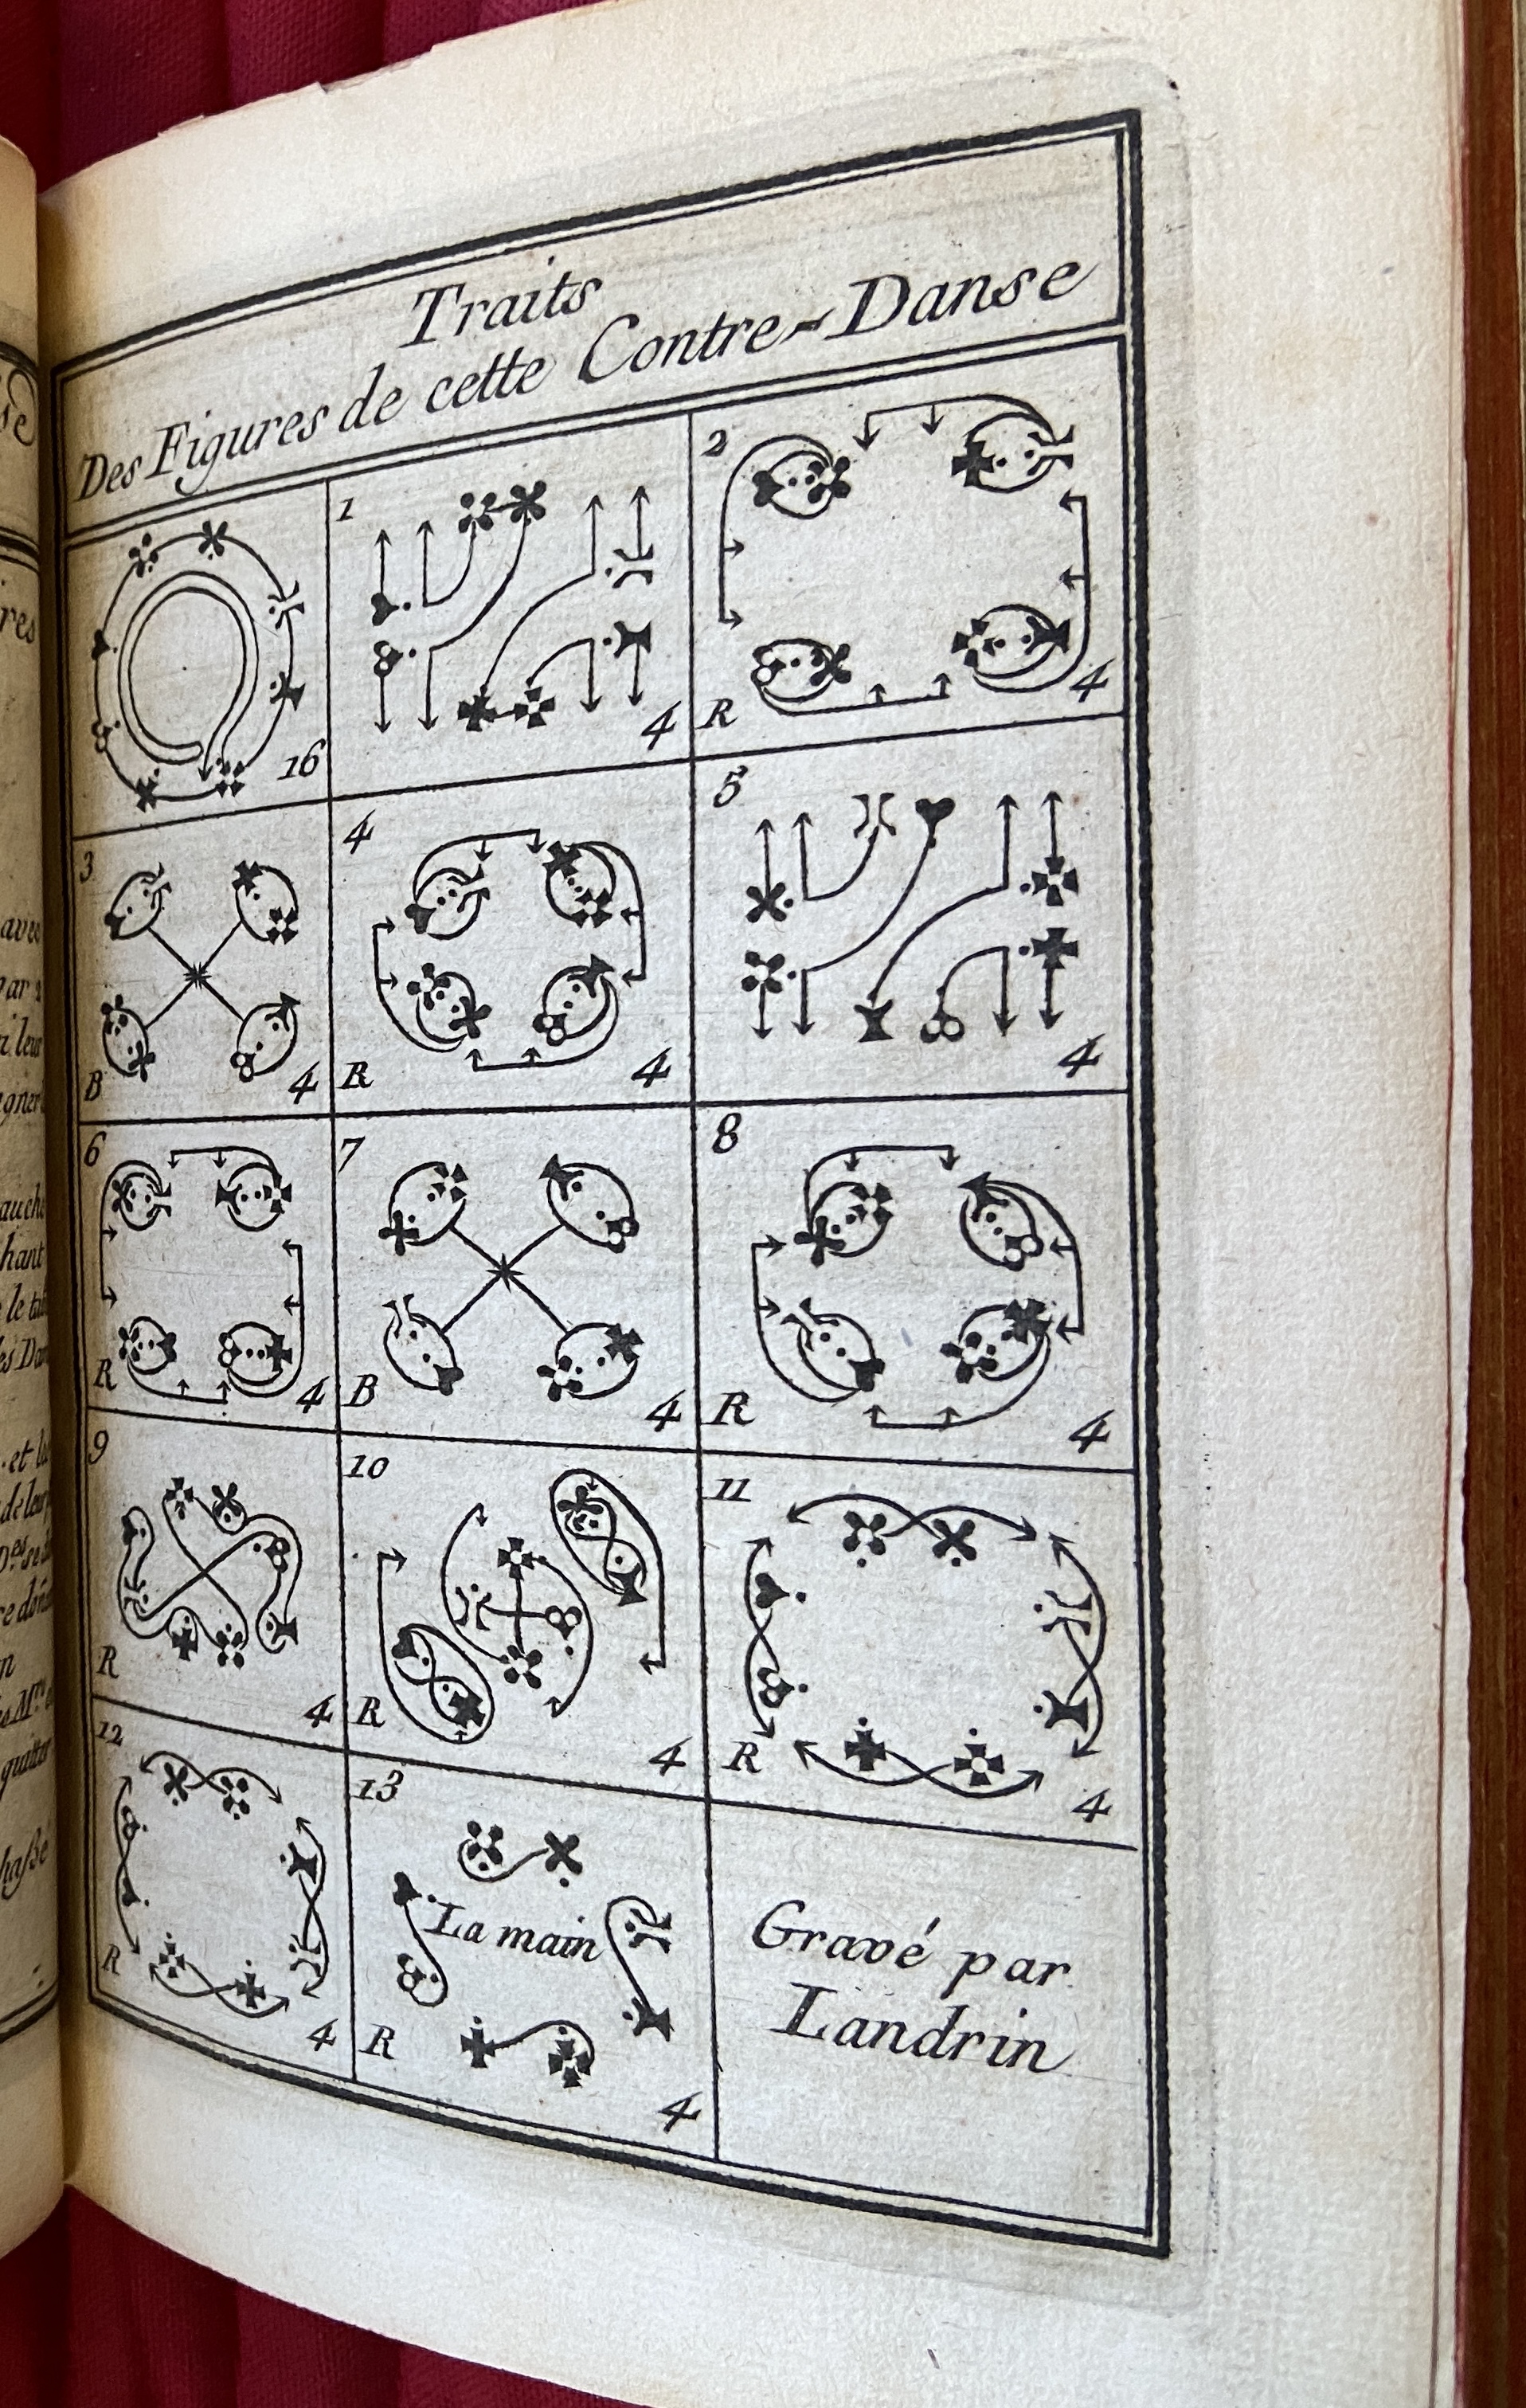 Traits
Des Figures de cette Contre=Danse
16
1
4
2
R
4
3
B
4
4
R
4
5
4
6
R
4
7
B
4
8
R
4
9
R
4
10
R
4
11
R
4
12
R
4
13
La main
R
4
Gravé par
Landrin